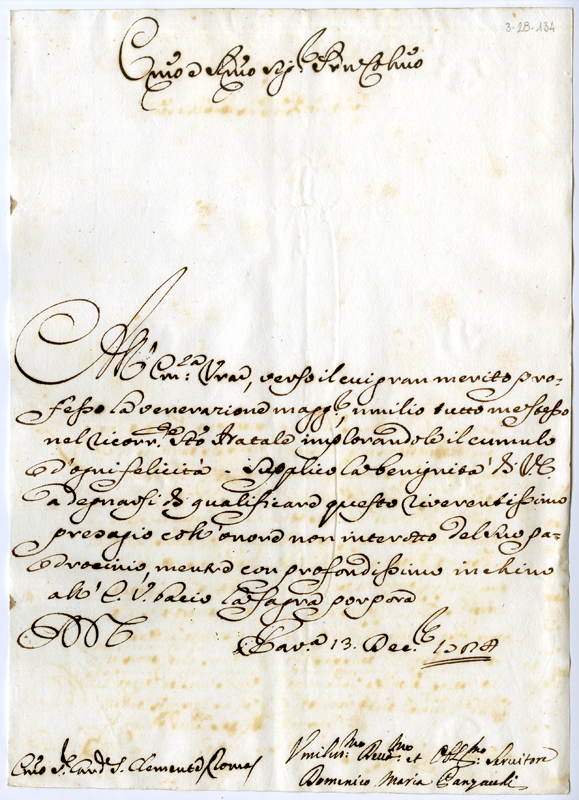 3-28-134
Em̃o e Rm̃o Sig.r Prñe Col.mo
All' Em.za Vra, verso il cui gran merito pro-
fesso la venerazione magg.re, umilio tutto me stesso
nel ricorr.e Sto Natale implorandole il cumulo
d'ogni felicità. Supplico la benignità di V.E.
a degnarsi di qualificare questo riverentissimo
presagio coll'onore non interotto del suo pa-
drocinio, mentre con profondissimo inchino
all' E. V. bacio la sagra porpora
13. Dec.re
Em̃o S.r Card.e S. Clemente Roma
Vmiliss.mo Devo.mo et Obl.mo Servitore
Domenico Maria